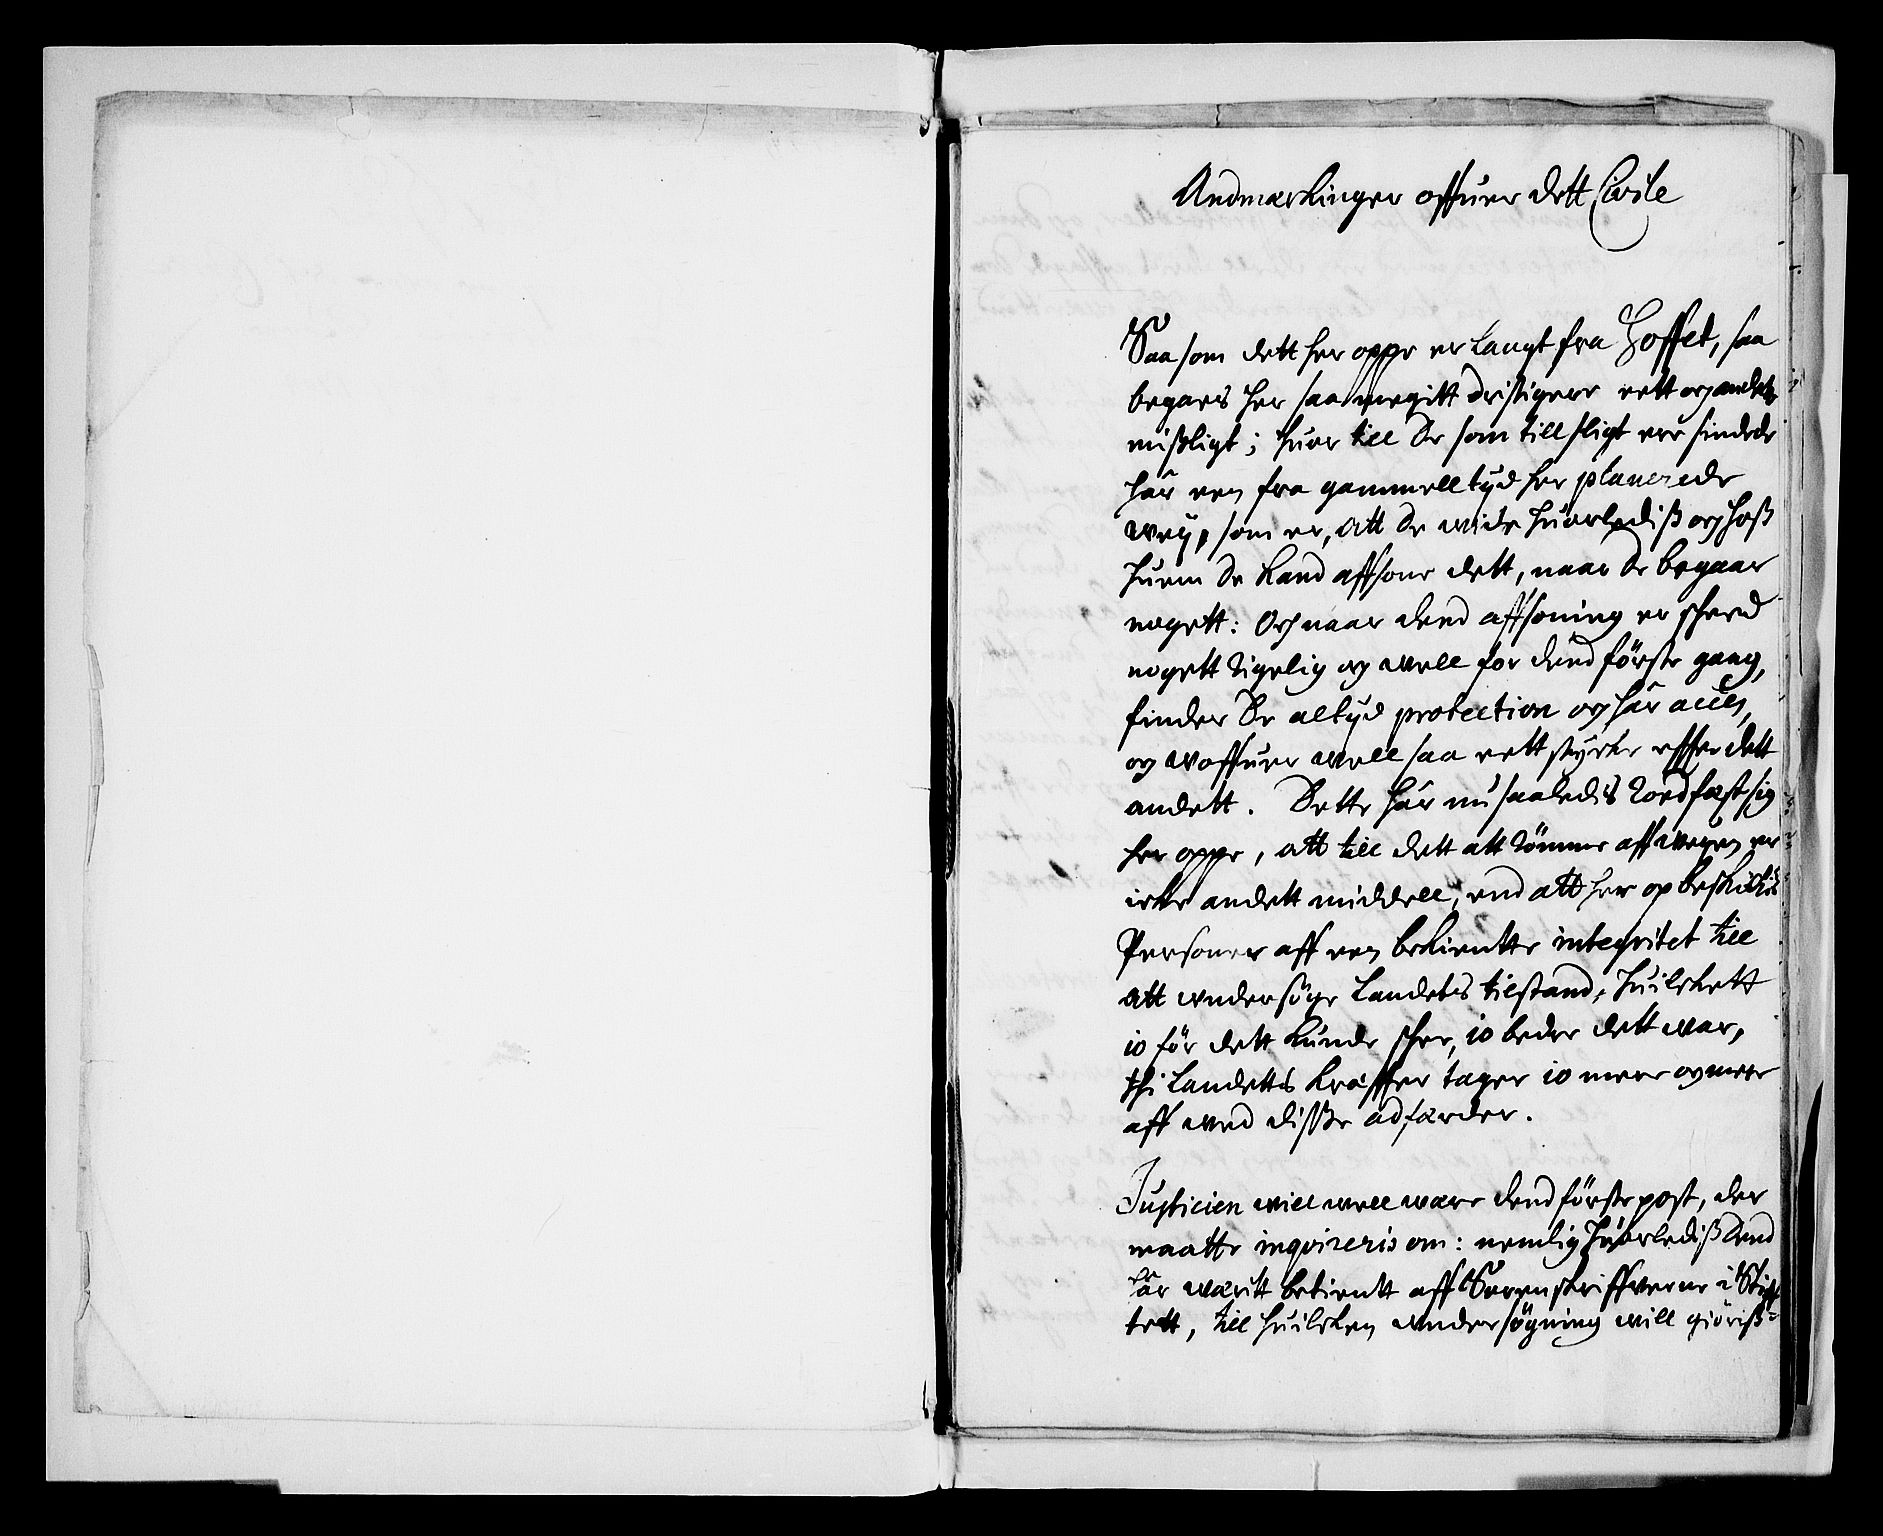 Andmærkinger offuer dett Civile
Saa som dett her oppe er langt fra Hoffet, saa
begaaes her saa megitt dristigere eett og andet
misligt; huor till de som till sligt ere sindede
har een fra gammell tyd her planerede
wey, som er, att de wide huorledis og hoss
huem de kand affsone dett, naar de begaar
nogett: Og naar dend affsoning er scheed
nogett rigelig og well for dend förste gang,
finder de altyd protection og har acces,
og woffuer well saa eett stycke effter dett
andett. Dette har nu saaledis rodfæst sig
her oppe, att till dett att römme aff weyen er
icke andett middell, end att her op beskickis
Personer aff een bekiendte integritet till
att undersöge Landets tilstand, huilckett
io för dett kunde schee, io bedre dett war,
thi Landetts kræffter tager io meere og meere
aff wed disse adfærder.
Justicien will well were dend förste post, der
maatte inqvireris om: nemlig huorledis dend
har wæritt betient aff Sorenskriffverne i Stiff¬
tett, till huilcken undersögning will giöris¬